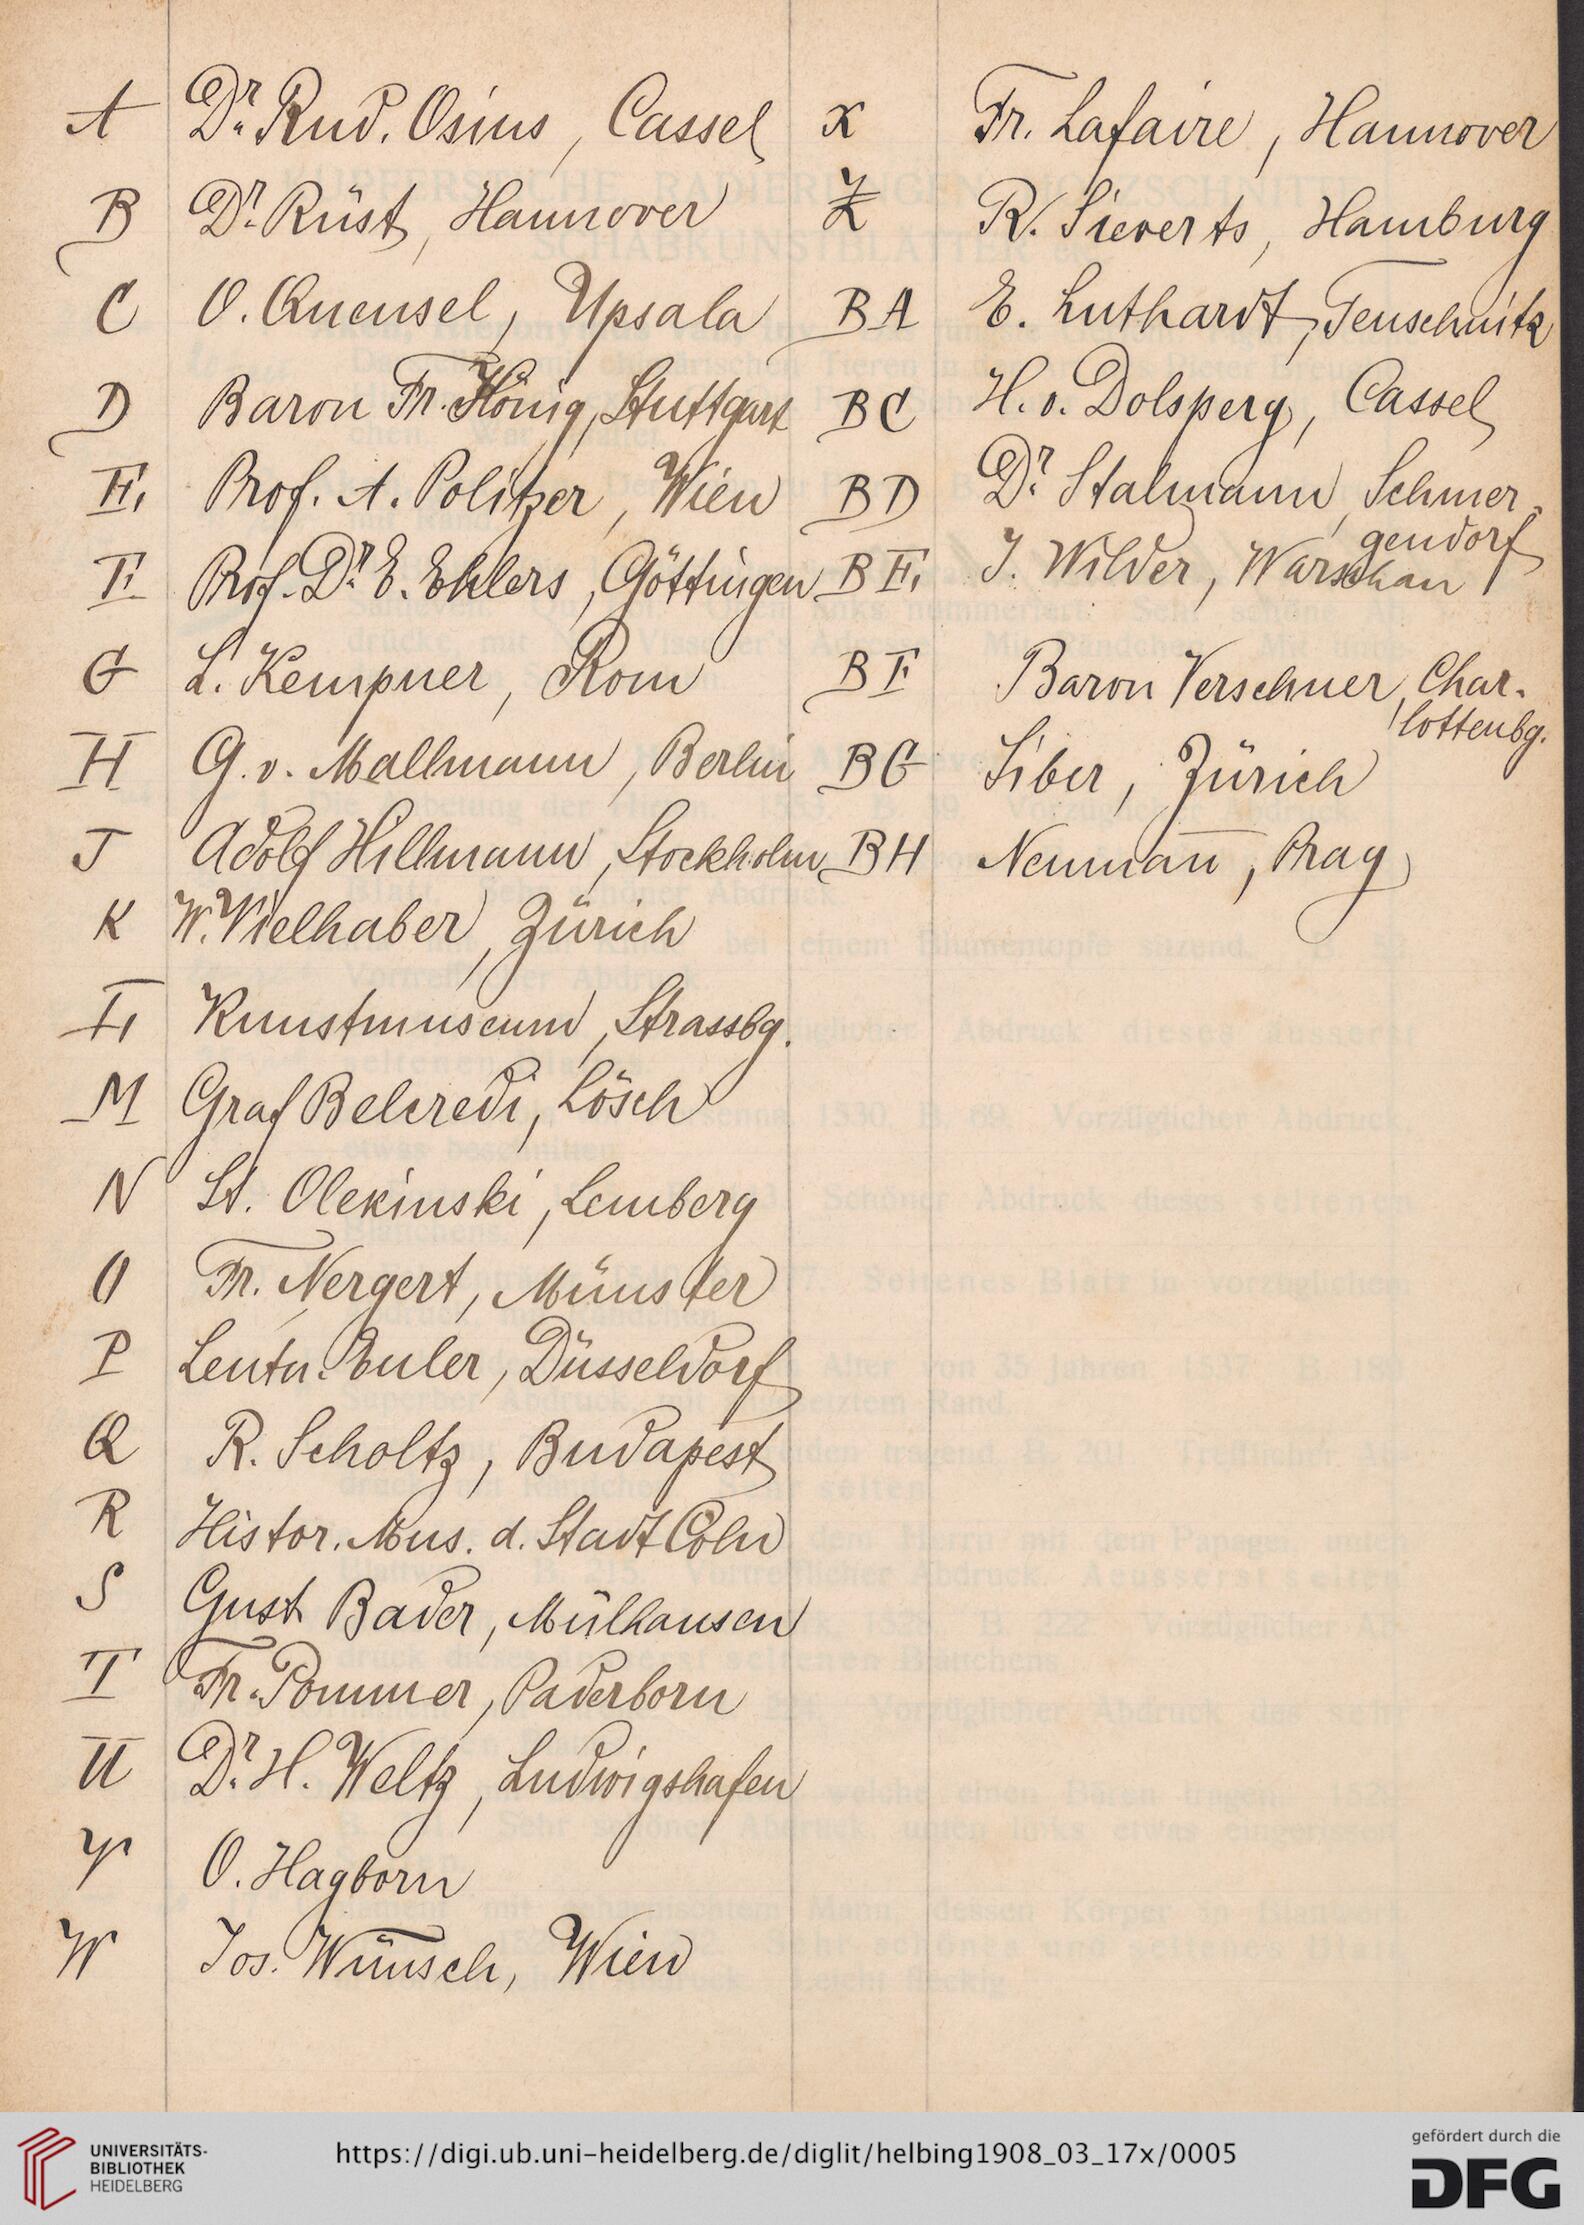 A Dr. Rud. Osius, Cassel
B Dr. Rüst, Hannover
C O. Quensel, Upsala
D Baron Fr. König, Stuttgart
E. Prof. A. Politzer, Wien
F Prof. Dr. E. Ehlers, Göttingen
G L. Kempner, Rom
H G. v. Mallmann, Berlin
J Adolf Hillmann, Stockholm
K W. Vielhaber, Zürich
L Kunstmuseum, Strassbg.
M Graf Belcredi, Lösch
N St. Olekinski, Lemberg
O Fr. Nergert, Münster
P Leutn. Euler, Düsseldorf
Q R. Scholtz, Budapest
R Histor. Mus. d. Stadt Cöln
S Gust Bader, Mülhausen
T Fr. Pommer, Paderborn
U Dr. H. Weltz, Ludwigshafen
V O. Hagborn
W Jos. Wünsch, Wien
X Fr. Lafaire, Hannover
Z R. Sieverts, Hamburg
BA E. Luthardt, Teuschnitz
BC H. v. Dolsperg, Cassel
BD Dr. Stalmann, Schmer-
gendorf
BE. J. Wilder, Warschau
BF Baron Verschuer, Char-
lottenbg.
BG Siber, Zürich
BH Neumañ, Prag
UNIVERSITÄTS-
BIBLIOTHEK
HEIDELBERG
https://digi.ub.uni-heidelberg.de/diglit/helbing1908_03_17x/0005
gefördert durch die
DFG